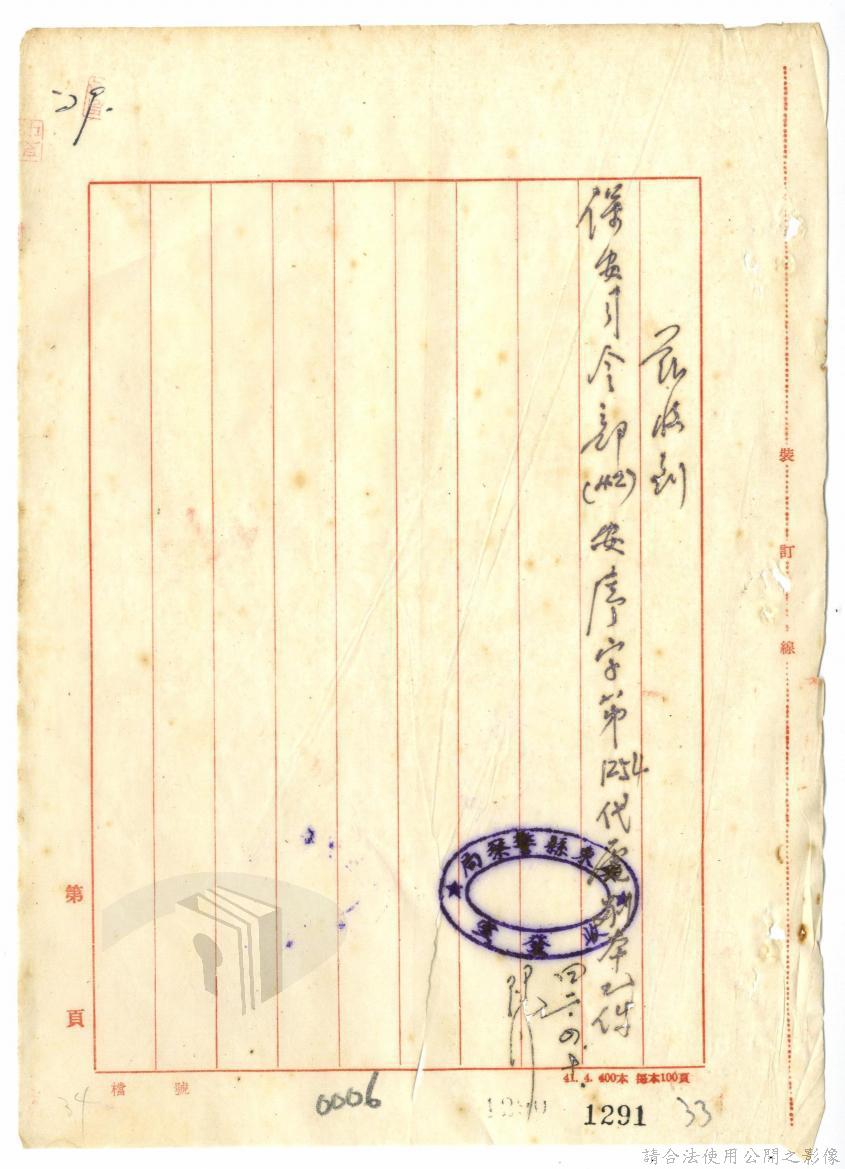 茲收到
保安司令部(42)安序字第1254代電副本乙件
四二.四.十.
東縣警察局
收發室
裝訂線
第頁
檔號
41. 4. 400本 每本100頁
0006
1290
1291
33
34
請合法使用公開之影像